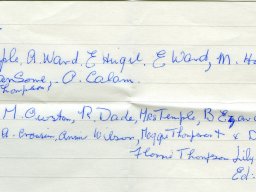 ple, A. Ward. E Hugil. E Ward, M. Ha
Ransome, A. Calam.
Thompson
M. Curston, R. Dade, Mrs Temple, B E
A. Crowson, Annie Wilson, Maggie Thompson + & D
Florrie Thompson Lily
Ed: